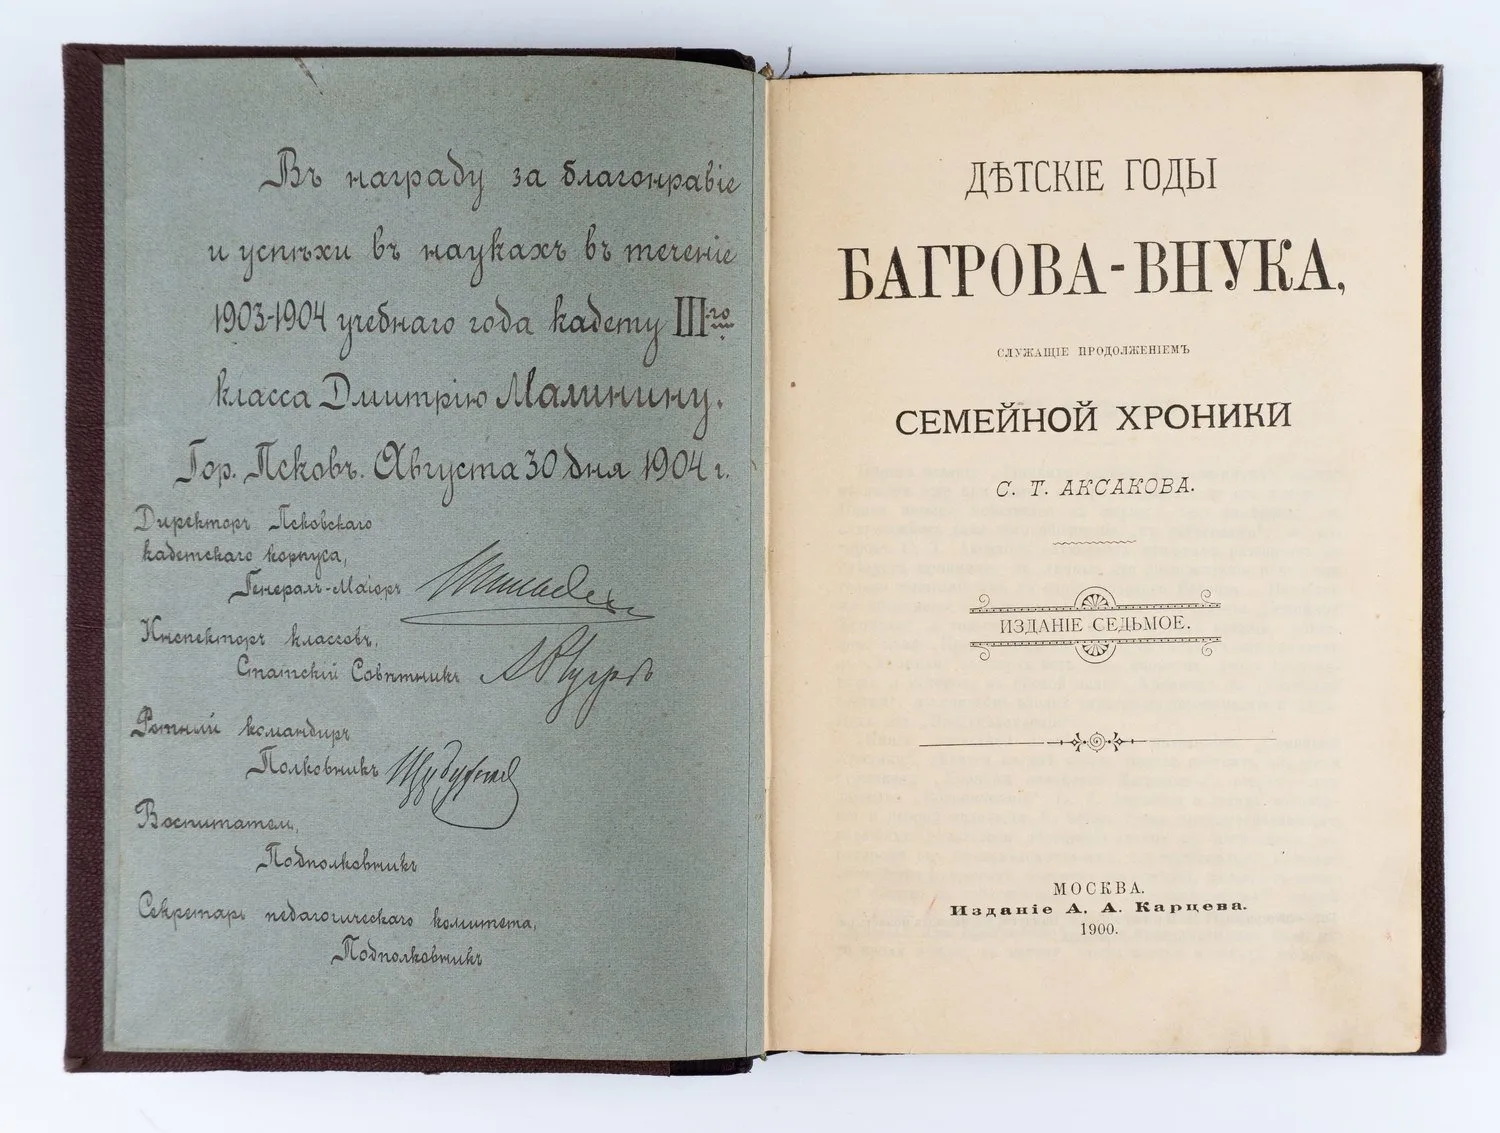 Въ награду за благонравіе
и успѣхи въ наукахъ въ теченіе
1903-1904 учебнаго года кадету III-го
класса Дмитрію Малинину.
Гор. Псковъ. Августа 30 дня 1904 г.
Директоръ Псковскаго
кадетскаго корпуса,
Генералъ-Маіоръ
Инспекторъ классовъ,
Статскій Совѣтникъ
Ротный командиръ
Полковникъ
Воспитатель,
Подполковникъ
Секретарь педагогическаго комитета,
Подполковникъ
ДѢТСКІЕ ГОДЫ
БАГРОВА-ВНУКА,
СЛУЖАЩІЕ ПРОДОЛЖЕНІЕМЪ
СЕМЕЙНОЙ ХРОНИКИ
С. Т. АКСАКОВА.
ИЗДАНІЕ СЕДЬМОЕ.
МОСКВА.
Изданіе А. А. Карцева.
1900.